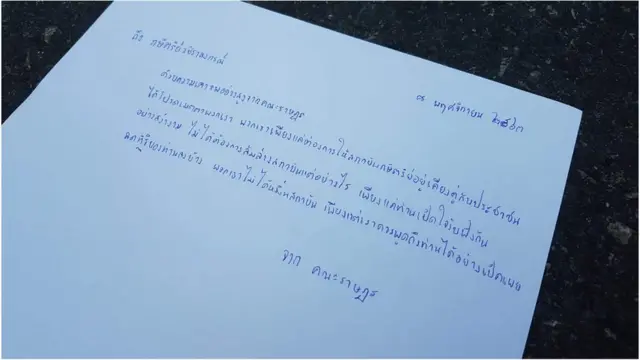 ถึง กษัตริย์วชิราลงกรณ์
๘ พฤศจิกายน ๒๕๖๓
ด้วยความเคารพอย่างสูงจากคณะราษฎร
ได้โปรดเมตตาพวกเรา พวกเราเพียงแค่ต้องการให้สถาบันกษัตริย์อยู่เคียงคู่กับประชาชน
อย่างสง่างาม ไม่ได้ต้องการล้มล้างสถาบันแต่อย่างไร เพียงแค่ท่านเปิดใจรับฟังกัน
ของท่านลงบ้าง พวกเราไม่ได้ สถาบัน เพียงแต่เราควรพูดถึงท่านได้อย่างเปิดเผย
จาก คณะราษฎร